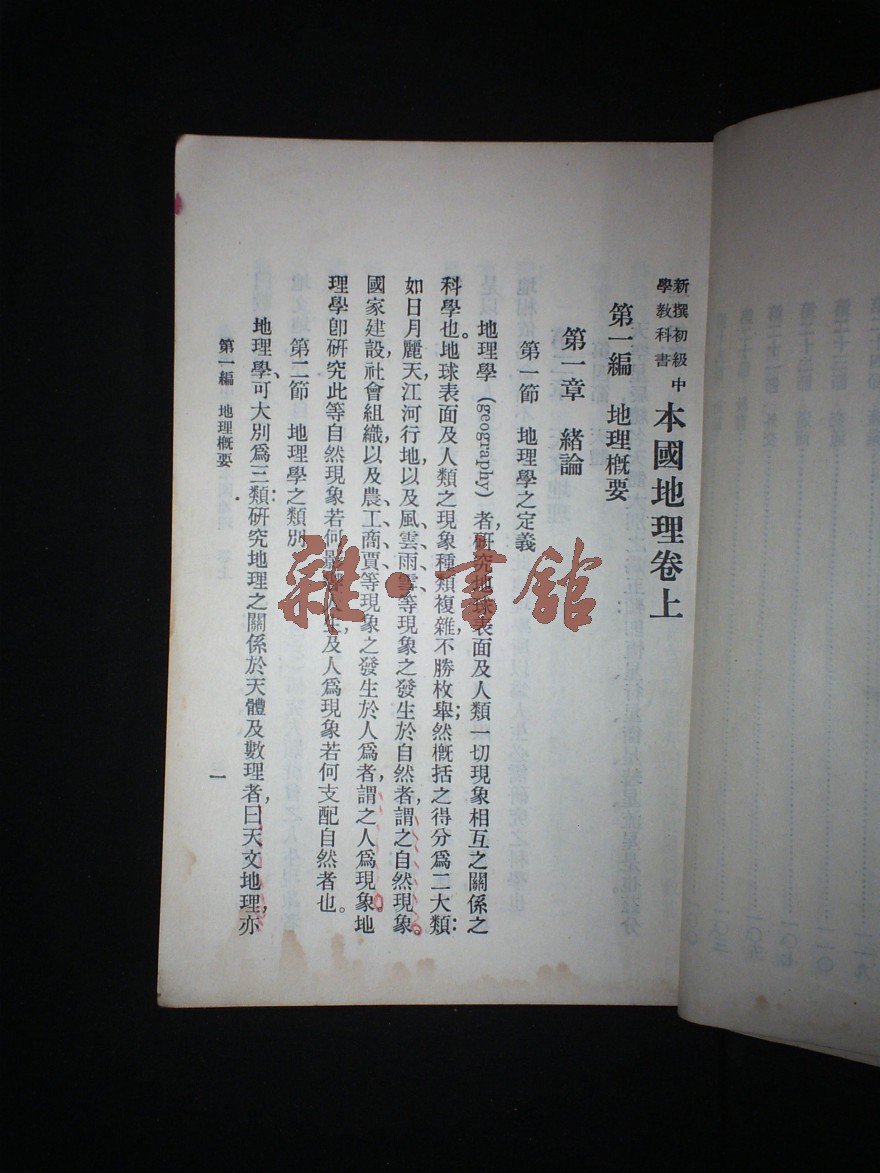 新撰初級中學教科書 本國地理卷上
第一編 地理概要
第一章 緒論
第一節 地理學之定義
地理學(geography)者,研究地球表面及人類一切現象相互之關係之
科學也。地球表面及人類之現象種類複雜,不勝枚舉;然概括之得分爲二大類:
如日月麗天,江河行地,以及風、雲、雨、雪、等現象之發生於自然者,謂之自然現象。
國家建設,社會組織,以及農、工、商、賈、等現象之發生於人爲者,謂之人爲現象。地
理學卽研究此等自然現象若何影響人生,及人爲現象若何支配自然者也。
第二節 地理學之類別
地理學,可大別爲三類:研究地理之關係於天體及數理者,曰天文地理,亦
第一編 地理概要
一
雜·書館